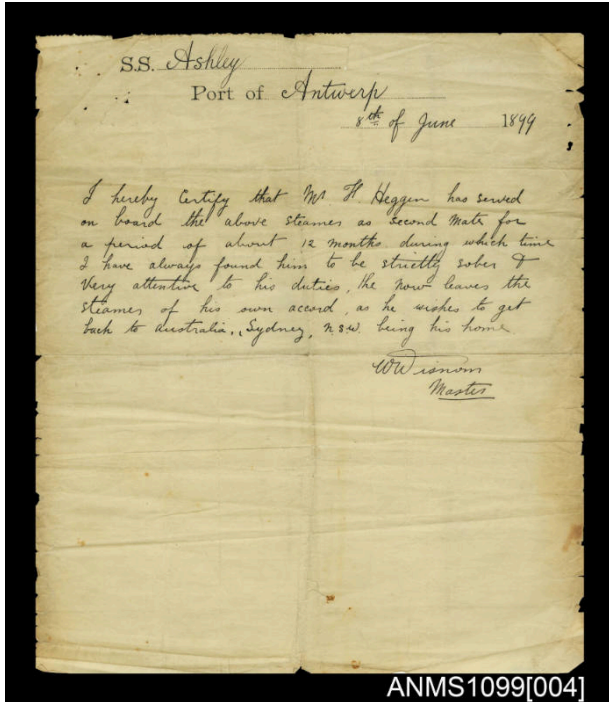 S.S. Ashley
Port of Antwerp
8th of June 1899
I hereby Certify that Mr H. Heggen has served
on board the above steamer as second mate for
a period of about 12 months during which time
I have always found him to be strictly sober &
very attentive to his duties, he now leaves the
steamer of his own accord, as he wishes to get
back to Australia, Sydney, N.S.W. being his home
Master
ANMS1099[004]